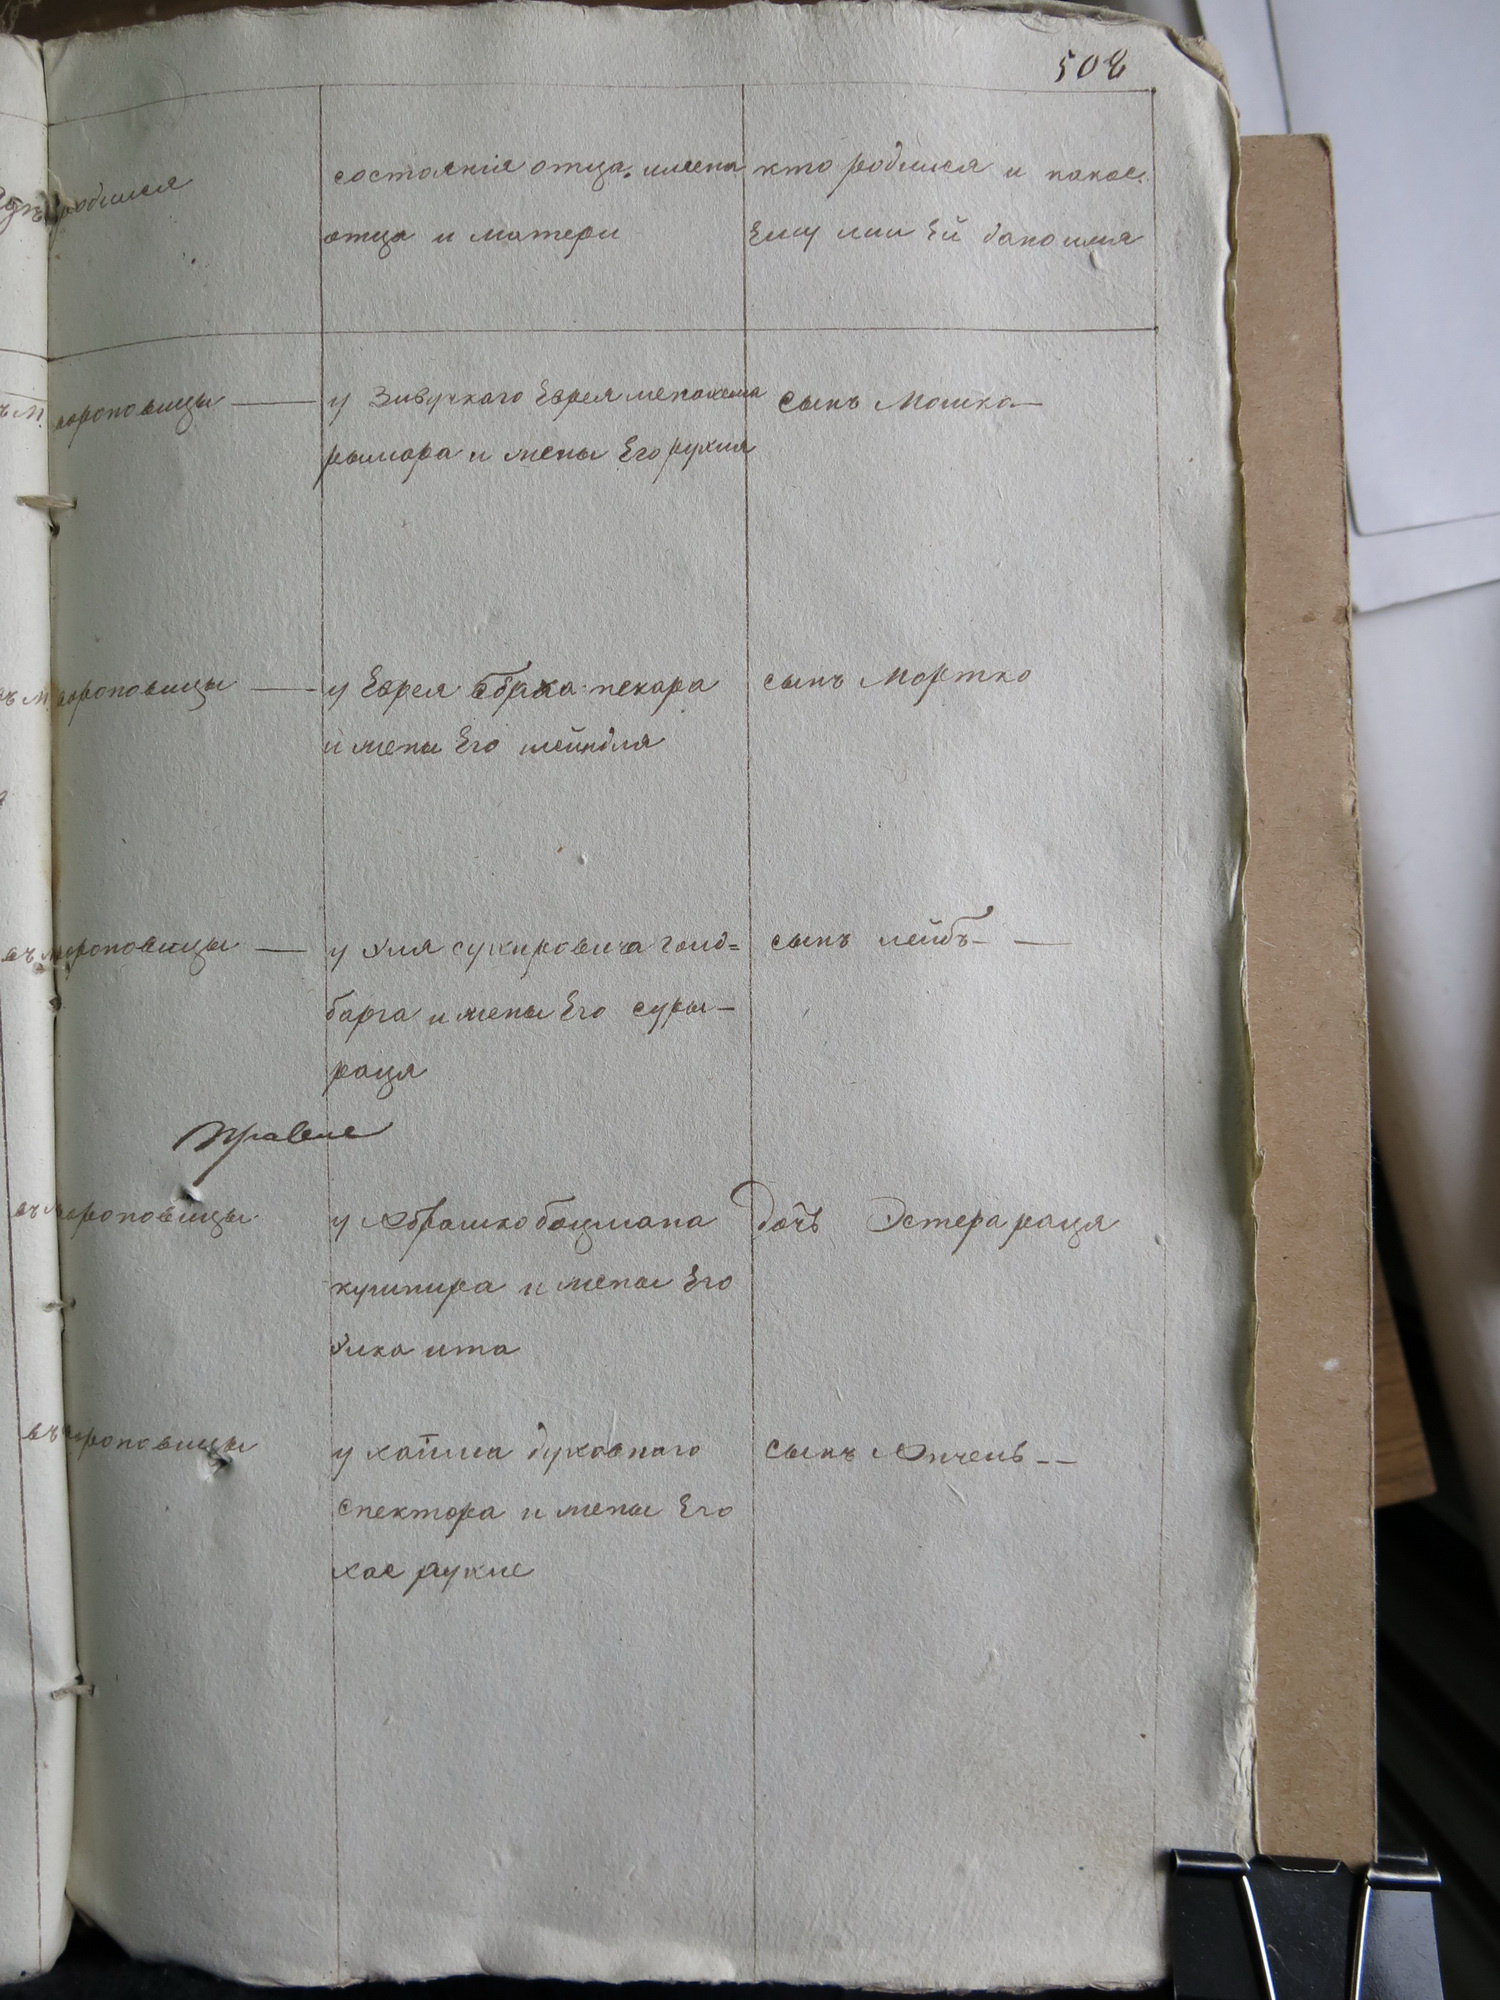 508
родился
состоянія отца. имена
отца и матери
кто родился и какое
Ему или Ей дано имя
въ м. ороповицы
у Зивучкаго Еврея менахема
рымора и жены Его рухля
сынъ Мошко
въ м ороповицы
у Еврея пекара
и жены Его шейндля
сынъ Мортко
въ мороповицы
у Уля сухировича голд=
барга и жены Его суры-
раця
сынъ лейбъ
въ мороповицы
у Абрамко боцмана
кушнира и жены Его
ита
дочъ Эстера раця
въ мороповицы
у хаима духовнаго
спектора и жены Его
хае рухле
сынъ